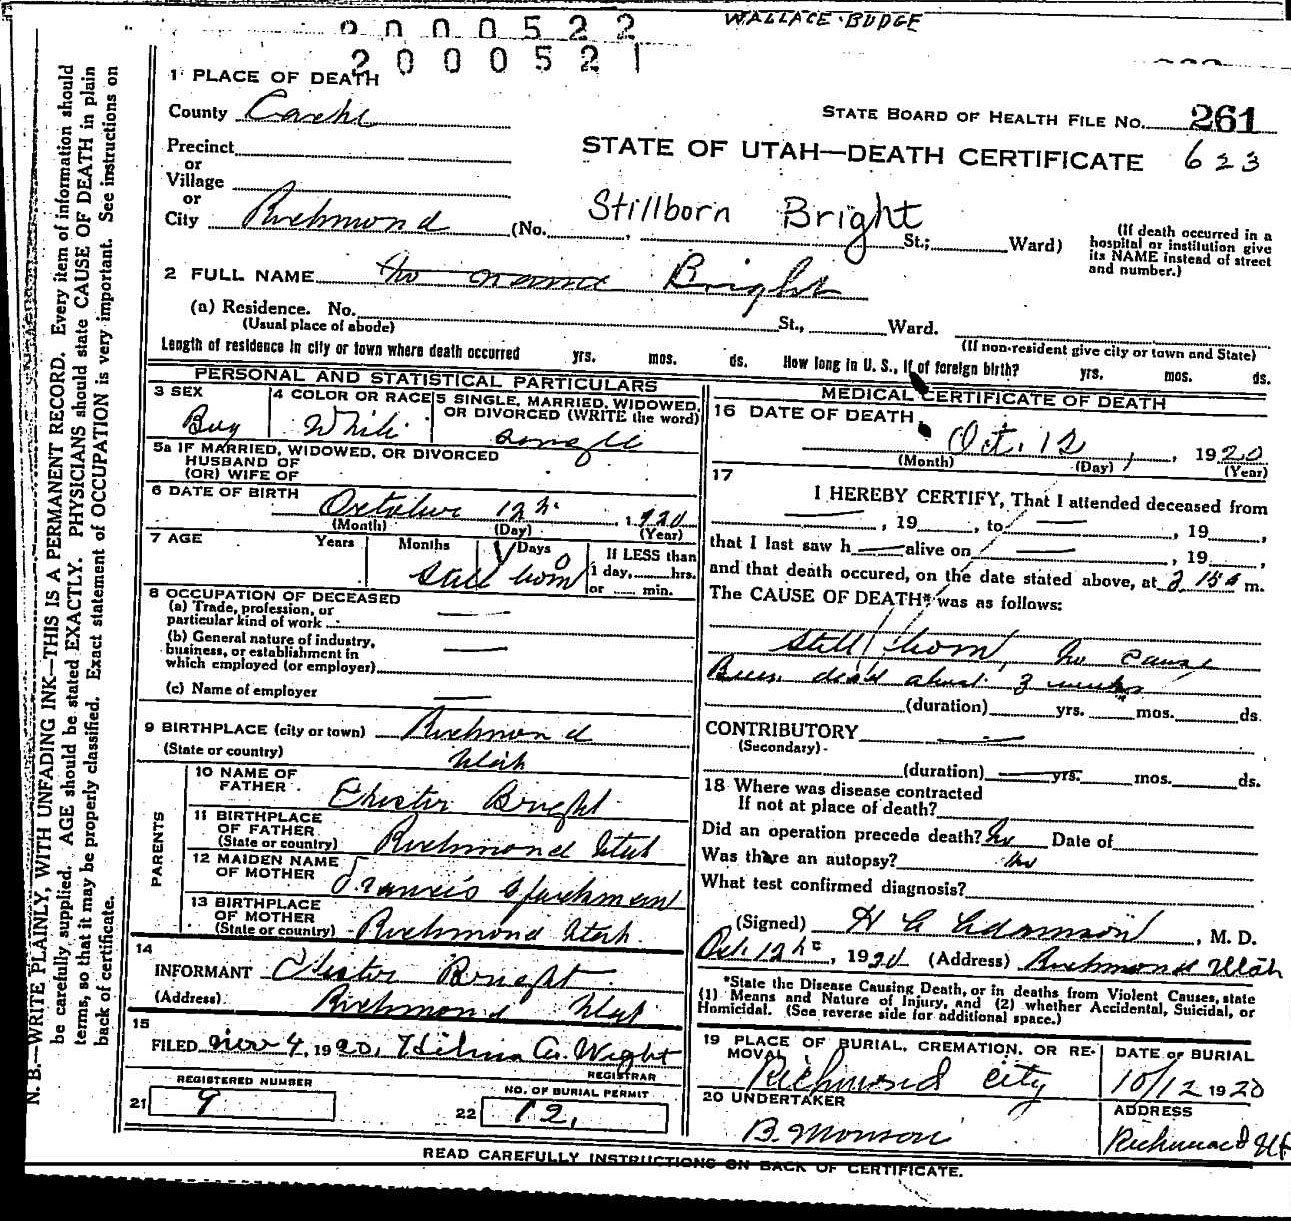 WALLACE BUDGE
2000522
2000521
1 PLACE OF DEATH
County Cache
STATE BOARD OF HEALTH FILE No. 261
Precinct
or
Village
or
STATE OF UTAH—DEATH CERTIFICATE 623
Stillborn Bright
City Richmond (No. , St.; Ward)
(If death occurred in a
hospital or institution give
its NAME instead of street
and number.)
2 FULL NAME No name Bright
(a) Residence. No. St., Ward.
(Usual place of abode)
(If non-resident give city or town and State)
Length of residence in city or town where death occurred yrs. mos. ds. How long in U. S., If of foreign birth? yrs. mos. ds.
PERSONAL AND STATISTICAL PARTICULARS
3 SEX
Boy
4 COLOR OR RACE
White
5 SINGLE, MARRIED, WIDOWED,
OR DIVORCED (WRITE the word)
single
5a IF MARRIED, WIDOWED, OR DIVORCED
HUSBAND OF
(OR) WIFE OF
6 DATE OF BIRTH
October 12th , 1920
(Month) (Day) (Year)
7 AGE Years Months Days If LESS than
Still born 0 1 day, hrs.
or min.
8 OCCUPATION OF DECEASED
(a) Trade, profession, or
particular kind of work
(b) General nature of industry,
business, or establishment in
which employed (or employer)
(c) Name of employer
9 BIRTHPLACE (city or town) Richmond
(State or country) Utah
PARENTS
10 NAME OF
FATHER Chester Bright
11 BIRTHPLACE
OF FATHER
(State or country) Richmond Utah
12 MAIDEN NAME
OF MOTHER Francis
13 BIRTHPLACE
OF MOTHER
(State or country) Richmond Utah
14
INFORMANT Chester Bright
(Address) Richmond Utah
15
FILED Nov 4, 1920, Hilma G. Wight
REGISTRAR
REGISTERED NUMBER
21 9
NO. OF BURIAL PERMIT
22 12
MEDICAL CERTIFICATE OF DEATH
16 DATE OF DEATH
Oct. 12 , 1920
(Month) (Day) (Year)
17
I HEREBY CERTIFY, That I attended deceased from
, 19 , to , 19 ,
that I last saw h alive on , 19 ,
and that death occured, on the date stated above, at 2 15 a m.
The CAUSE OF DEATH* was as follows:
Still born, no cause
Been dead about 3 weeks
(duration) yrs. mos. ds.
CONTRIBUTORY
(Secondary)
(duration) yrs. mos. ds.
18 Where was disease contracted
If not at place of death?
Did an operation precede death? No Date of
Was there an autopsy? No
What test confirmed diagnosis?
(Signed) H C Adamson , M. D.
Oct. 12th , 1920 (Address) Richmond Utah
*State the Disease Causing Death, or in deaths from Violent Causes, state
(1) Means and Nature of Injury, and (2) whether Accidental, Suicidal, or
Homicidal. (See reverse side for additional space.)
19 PLACE OF BURIAL, CREMATION, OR RE-
MOVAL Richmond City
DATE OF BURIAL
10/12 1920
20 UNDERTAKER
B. Monson
ADDRESS
Richmond Ut
READ CAREFULLY INSTRUCTIONS ON BACK OF CERTIFICATE.
N. B.—WRITE PLAINLY, WITH UNFADING INK—THIS IS A PERMANENT RECORD. Every item of information should
be carefully supplied. AGE should be stated EXACTLY. PHYSICIANS should state CAUSE OF DEATH in plain
terms, so that it may be properly classified. Exact statement of OCCUPATION is very important. See instructions on
back of certificate.